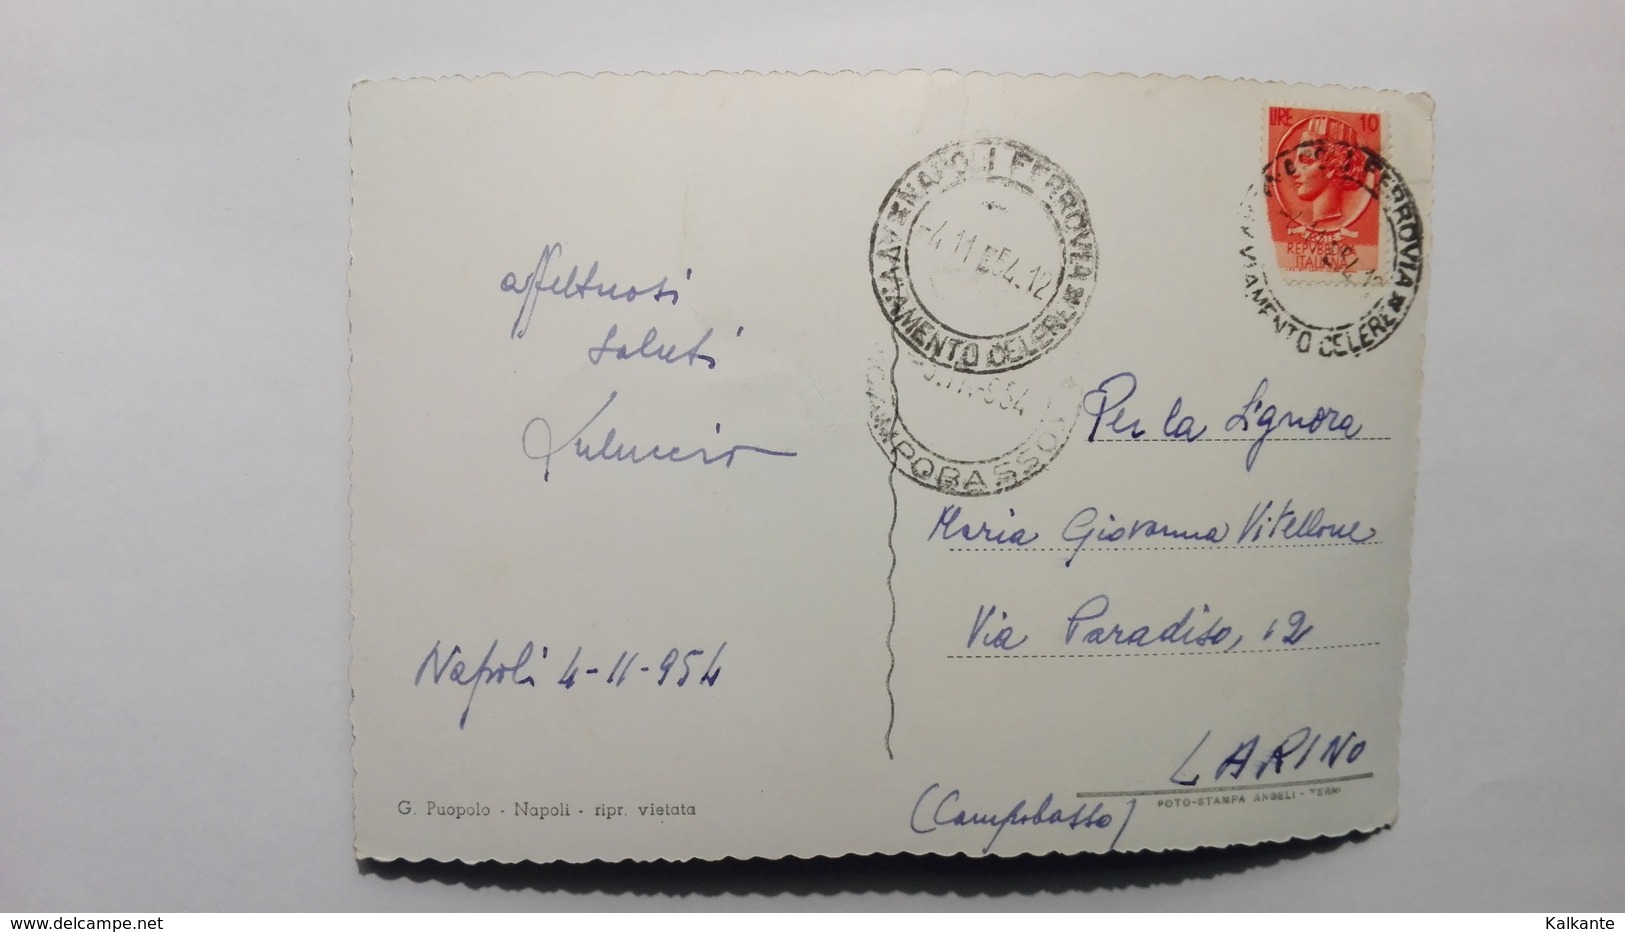 affettuosi
saluti
Napoli 4-11-954
G. Puopolo - Napoli - ripr. vietata
NAPOLI FERROVIA
AVVIAMENTO CELERE
-4.11 54.12
CAMPOBASSO
LIRE 10
POSTE
REPVBBLICA
ITALIANA
NAPOLI FERROVIA
AVVIAMENTO CELERE
Per la Signora
Maria Giovanna Vitellone
Via Paradiso, 12
LARINO
(Campobasso)
FOTO-STAMPA ANGELI - TERNI
delcampe.net
Kalkante